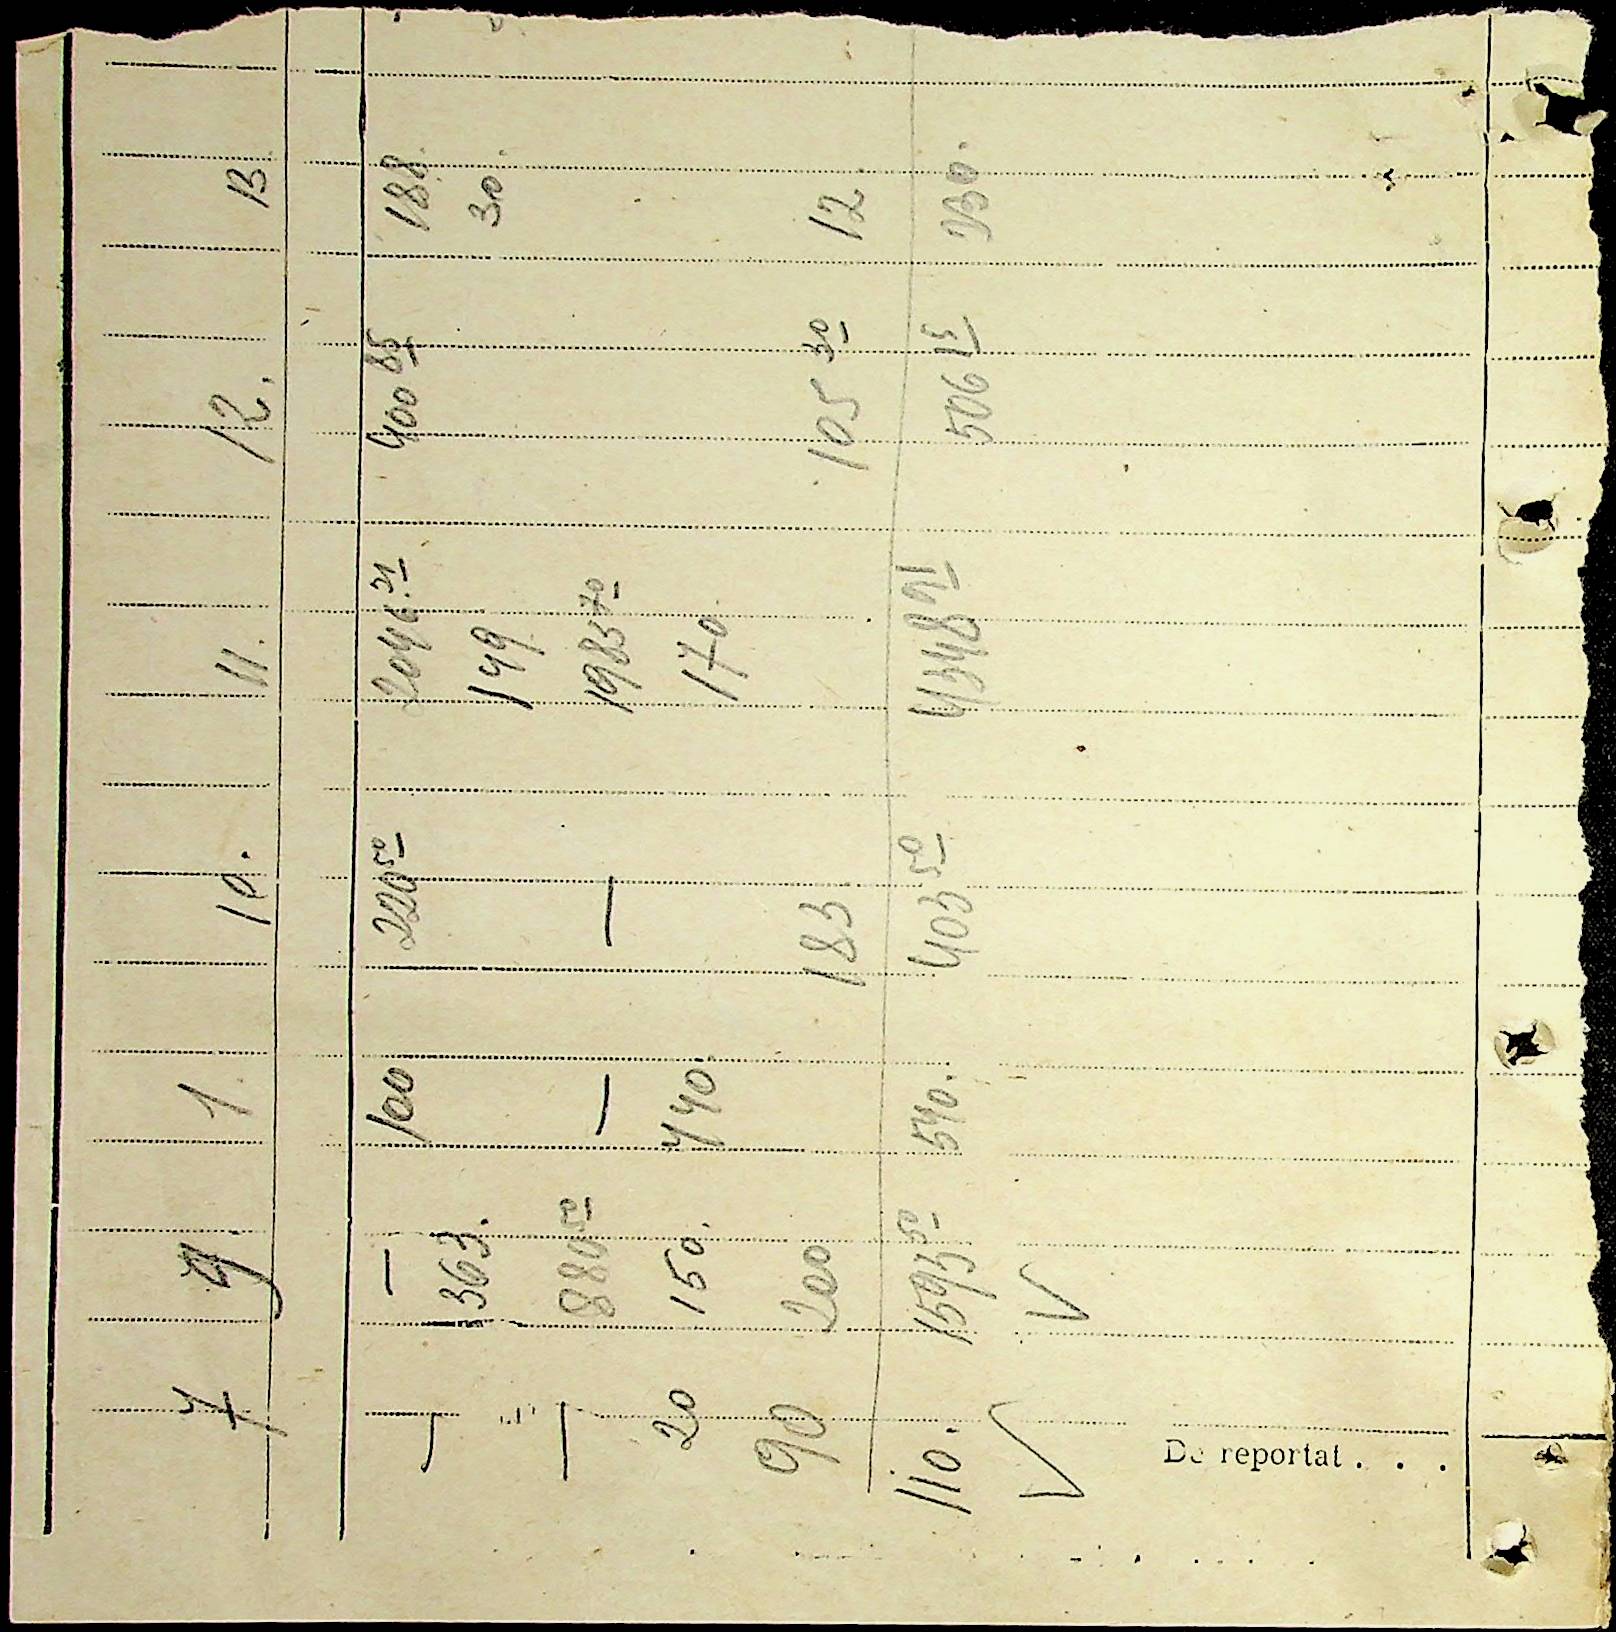 7 9 1 10. 11. 12. 13
— — 100 220 50 2046.21 400 85 188.
363. 149 30.
— 880 50 — — 1983 70
20 150. 440. 170
90 200 183 105 30 12
110. 1593 50 540. 403 50 4348 91 506 15 230.
De reportat . . .